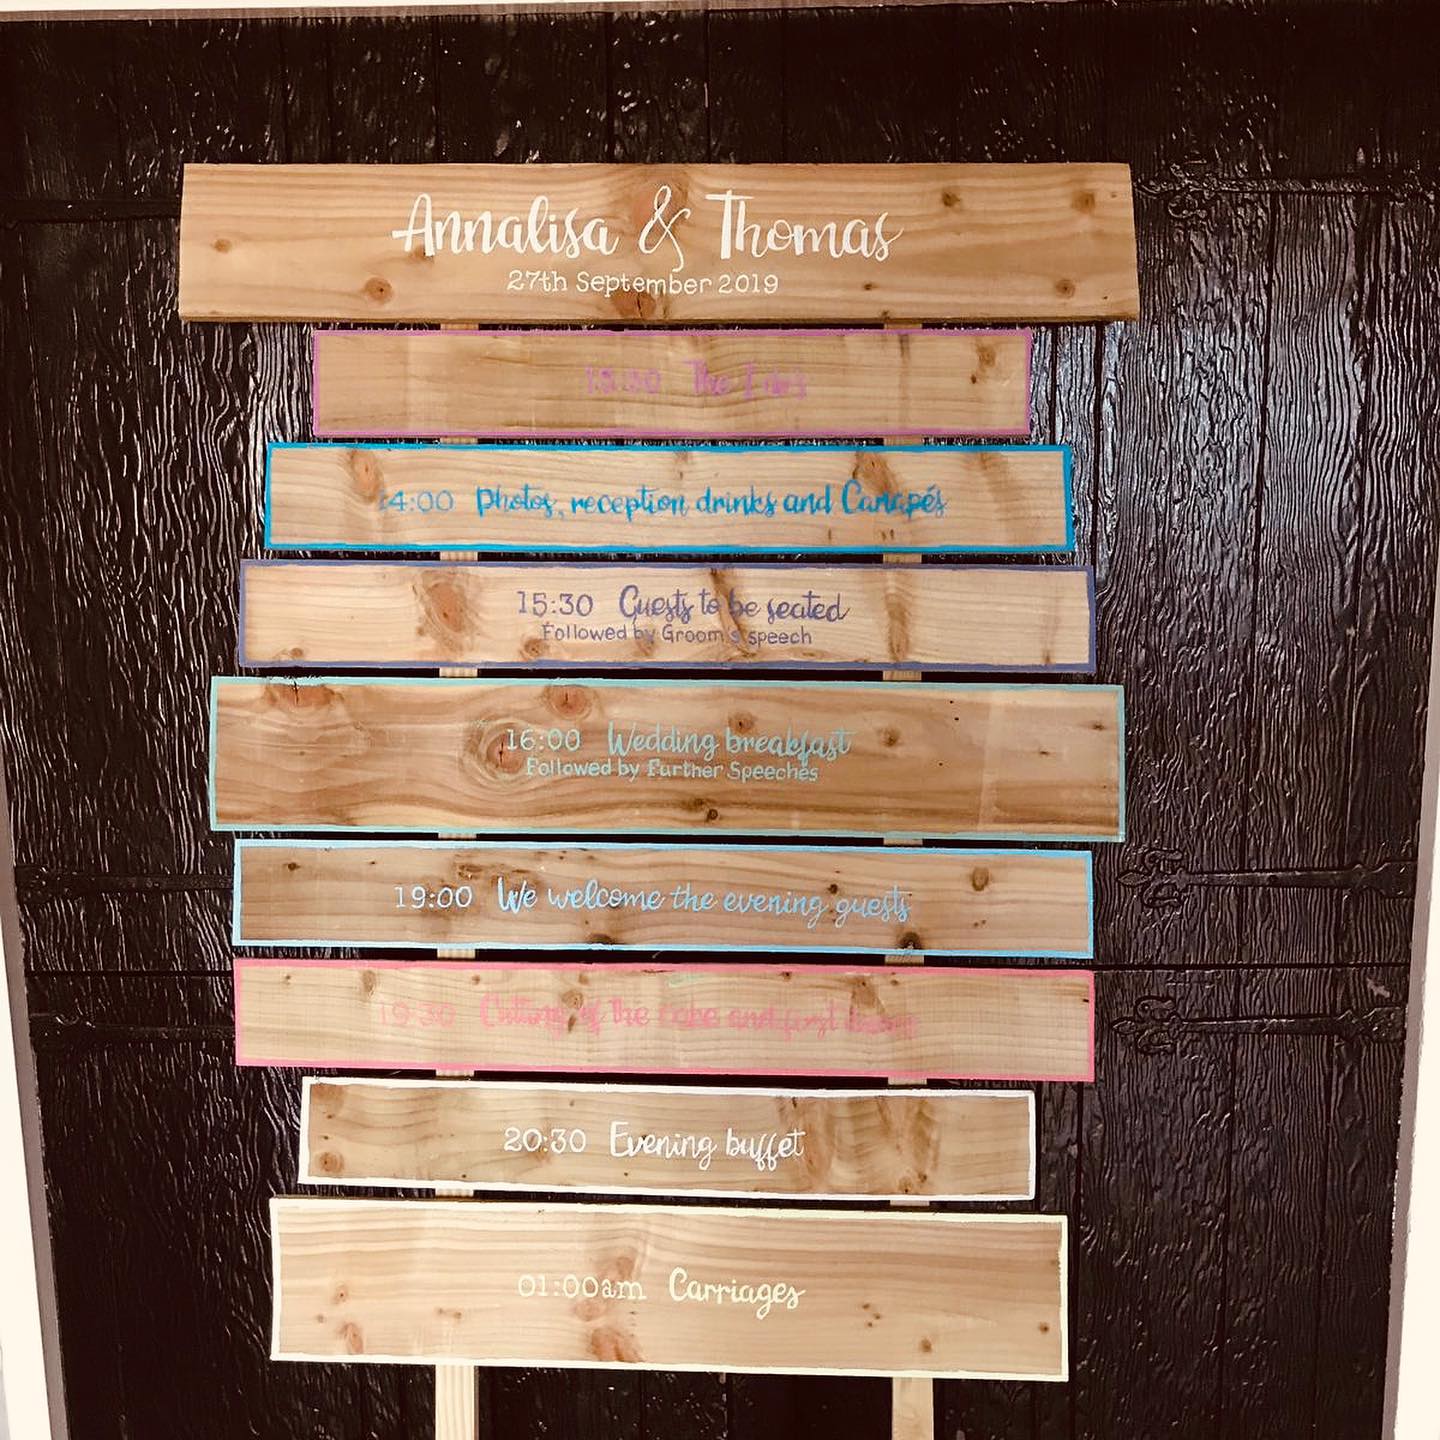 Annalisa & Thomas
27th September 2019
The I do's
14:00 Photos, reception drinks and Canapés
15:30 Guests to be seated
Followed by Groom's speech
16:00 Wedding breakfast
Followed by Further Speeches
19:00 We welcome the evening guests
19:30 Cutting of the cake and first dance
20:30 Evening buffet
01:00am Carriages